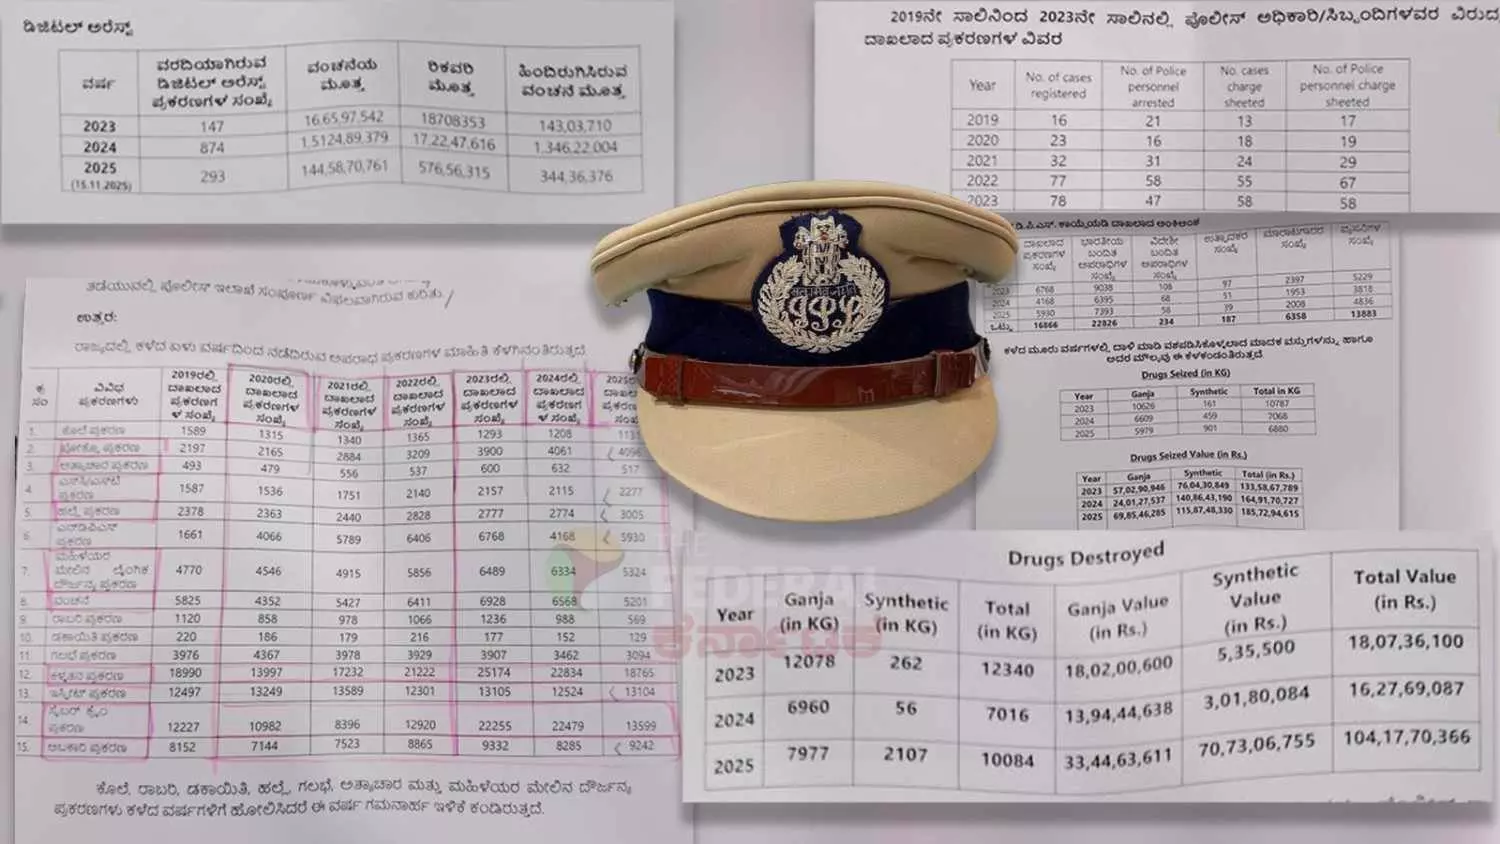 ಡಿಜಿಟಲ್ ಅರೆಸ್ಟ್
ವರ್ಷ ವರದಿಯಾಗಿರುವ ಡಿಜಿಟಲ್ ಅರೆಸ್ಟ್ ಪ್ರಕರಣಗಳ ಸಂಖ್ಯೆ ವಂಚನೆಯ ಮೊತ್ತ ರಿಕವರಿ ಮೊತ್ತ ಹಿಂದಿರುಗಿಸಿರುವ ವಂಚನೆ ಮೊತ್ತ
2023 147 16,65,97,542 18708353 143,03,710
2024 874 1,5124,89,379 17,22,47,616 1,346,22,004
2025 (15.11.2025) 293 144,58,70,761 576,56,315 344,36,376
2019ನೇ ಸಾಲಿನಿಂದ 2023ನೇ ಸಾಲಿನಲ್ಲಿ ಪೊಲೀಸ್ ಅಧಿಕಾರಿ/ಸಿಬ್ಬಂದಿಗಳವರ ವಿರುದ
ದಾಖಲಾದ ಪ್ರಕರಣಗಳ ವಿವರ
Year No. of cases registered No. of Police personnel arrested No. cases charge sheeted No. of Police personnel charge sheeted
2019 16 21 13 17
2020 23 16 18 19
2021 32 31 24 29
2022 77 58 55 67
2023 78 47 58 58
ಡಿ.ಪಿ.ಎಸ್. ಕಾಯ್ದೆಯಡಿ ದಾಖಲಾದ ಅಂಕಿಅಂಶ
ದಾಖಲಾದ ಪ್ರಕರಣಗಳ ಸಂಖ್ಯೆ ಭಾರತೀಯ ಬಂಧಿತ ಅಪರಾಧಿಗಳ ಸಂಖ್ಯೆ ವಿದೇಶೀ ಬಂಧಿತ ಅಪರಾಧಿಗಳ ಸಂಖ್ಯೆ ಉತ್ಪಾದಕರ ಸಂಖ್ಯೆ ಮಾರಾಟಗಾರರ ಸಂಖ್ಯೆ ವ್ಯಸನಿಗಳ ಸಂಖ್ಯೆ
2023 6768 9038 108 97 2397 5229
2024 4168 6395 68 51 1953 3818
2025 5930 7393 58 39 2008 4836
ಒಟ್ಟು 16866 22826 234 187 6358 13883
ಕಳೆದ ಮೂರು ವರ್ಷಗಳಲ್ಲಿ ದಾಳಿ ಮಾಡಿ ವಶಪಡಿಸಿಕೊಳ್ಳಲಾದ ಮಾದಕ ವಸ್ತುಗಳನ್ನು ಹಾಗೂ
ಅದರ ಮೌಲ್ಯವು ಈ ಕೆಳಕಂಡಂತಿರುತ್ತದೆ.
Drugs Seized (in KG)
Year Ganja Synthetic Total in KG
2023 10626 161 10787
2024 6609 459 7068
2025 5979 901 6880
Drugs Seized Value (in Rs.)
Year Ganja Synthetic Total (in Rs.)
2023 57,02,90,946 76,04,30,849 133,58,67,789
2024 24,01,27,537 140,86,43,190 164,91,70,727
2025 69,85,46,285 115,87,48,330 185,72,94,615
ತಡೆಯುವಲ್ಲಿ ಪೊಲೀಸ್ ಇಲಾಖೆ ಸಂಪೂರ್ಣ ವಿಫಲವಾಗಿರುವ ಕುರಿತು/
ಉತ್ತರ:
ರಾಜ್ಯದಲ್ಲಿ ಕಳೆದ ಏಳು ವರ್ಷದಿಂದ ನಡೆದಿರುವ ಅಪರಾಧ ಪ್ರಕರಣಗಳ ಮಾಹಿತಿ ಕೆಳಗಿನಂತಿರುತ್ತದೆ
ಕ್ರ ಸಂ ವಿವಿಧ ಪ್ರಕರಣಗಳು 2019ರಲ್ಲಿ ದಾಖಲಾದ ಪ್ರಕರಣಗಳ ಸಂಖ್ಯೆ 2020ರಲ್ಲಿ ದಾಖಲಾದ ಪ್ರಕರಣಗಳ ಸಂಖ್ಯೆ 2021ರಲ್ಲಿ ದಾಖಲಾದ ಪ್ರಕರಣಗಳ ಸಂಖ್ಯೆ 2022ರಲ್ಲಿ ದಾಖಲಾದ ಪ್ರಕರಣಗಳ ಸಂಖ್ಯೆ 2023ರಲ್ಲಿ ದಾಖಲಾದ ಪ್ರಕರಣಗಳ ಸಂಖ್ಯೆ 2024ರಲ್ಲಿ ದಾಖಲಾದ ಪ್ರಕರಣಗಳ ಸಂಖ್ಯೆ
1. ಕೊಲೆ ಪ್ರಕರಣ 1589 1315 1340 1365 1293 1208 1131
2. ಪೋಕ್ಸೊ ಪ್ರಕರಣ 2197 2165 2884 3209 3900 4061 4096
3. ಅತ್ಯಾಚಾರ ಪ್ರಕರಣ 493 479 556 537 600 632 517
4. ಎಸ್‌ಸಿ/ಎಸ್‌ಟಿ ಪ್ರಕರಣ 1587 1536 1751 2140 2157 2115 2277
5. ಹಲ್ಲೆ ಪ್ರಕರಣ 2378 2363 2440 2828 2777 2774 3005
6. ಎನ್‌ಡಿಪಿಎಸ್ ಪ್ರಕರಣ 1661 4066 5789 6406 6768 4168 5930
7. ಮಹಿಳೆಯರ ಮೇಲಿನ ಲೈಂಗಿಕ ದೌರ್ಜನ್ಯ ಪ್ರಕರಣ 4770 4546 4915 5856 6489 6334 5324
8. ವಂಚನೆ 5825 4352 5427 6411 6928 6568 5201
9. ರಾಬರಿ ಪ್ರಕರಣ 1120 858 978 1066 1236 988 569
10. ಡಕಾಯಿತಿ ಪ್ರಕರಣ 220 186 179 216 177 152 129
11. ಗಲಭೆ ಪ್ರಕರಣ 3976 4367 3978 3929 3907 3462 3094
12. ಕಳ್ಳತನ ಪ್ರಕರಣ 18990 13997 17232 21222 25174 22834 18765
13. ಇಸ್ಪೀಟ್ ಪ್ರಕರಣ 12497 13249 13589 12301 13105 12524 13104
14. ಸೈಬರ್ ಕ್ರೈಂ ಪ್ರಕರಣ 12227 10982 8396 12920 22255 22479 13599
15. ಅಬಕಾರಿ ಪ್ರಕರಣ 8152 7144 7523 8865 9332 8285 9242
ಕೊಲೆ, ರಾಬರಿ, ಡಕಾಯಿತಿ, ಹಲ್ಲೆ, ಗಲಭೆ, ಅತ್ಯಾಚಾರ ಮತ್ತು ಮಹಿಳೆಯರ ಮೇಲಿನ ದೌರ್ಜನ್ಯ
ಪ್ರಕರಣಗಳು ಕಳೆದ ವರ್ಷಗಳಿಗೆ ಹೋಲಿಸಿದರೆ ಈ ವರ್ಷ ಗಮನಾರ್ಹ ಇಳಿಕೆ ಕಂಡಿರುತ್ತದೆ.
THE
FEDERAL
ಕರ್ನಾಟಕ
Drugs Destroyed
Year Ganja (in KG) Synthetic (in KG) Total (in KG) Ganja Value (in Rs.) Synthetic Value (in Rs.) Total Value (in Rs.)
2023 12078 262 12340 18,02,00,600 5,35,500 18,07,36,100
2024 6960 56 7016 13,94,44,638 3,01,80,084 16,27,69,087
2025 7977 2107 10084 33,44,63,611 70,73,06,755 104,17,70,366